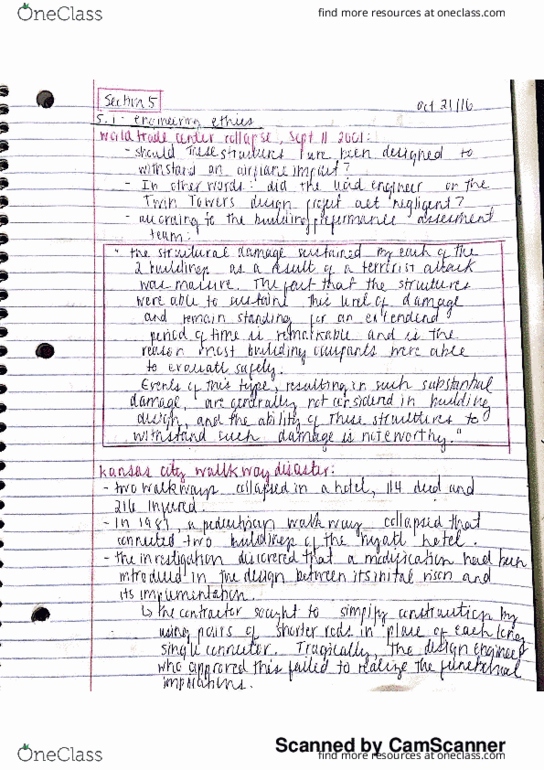 OneClass
find more resources at oneclass.com
Section 5
oct 21/16
5.1 - engineering ethics
world trade center collapse, Sept 11 2001:
- should these structures have been designed to
withstand an airplane impact?
- In other words: did the lead engineer on the
Twin Towers design project act negligent?
- according to the building performance assessment
team:
" the structural damage sustained by each of the
2 buildings as a result of a terrorist attack
was massive. The fact that the structures
were able to sustain this level of damage
and remain standing for an extendend
period of time is remarkable and is the
reason most building occupants were able
to evacuate safely.
Events of this type, resulting in such substantial
damage, are generally not considered in building
design, and the ability of these structures to
withstand such damage is noteworthy."
kansas city walkway disaster:
- two walkways collapsed in a hotel, 114 dead and
216 injured.
- In 1981, a pedestrian walkway collapsed that
connected two buildings of the hyatt hotel.
- the investigation discovered that a modification had been
introduced in the design between its inital and
its implementation.
↳ the contractor sought to simplify construction by
using pairs of shorter rods in place of each long
single connector. Tragically, the design engineer
who approved this failed to realize the functional
implications.
Scanned by CamScanner
OneClass
find more resources at oneclass.com